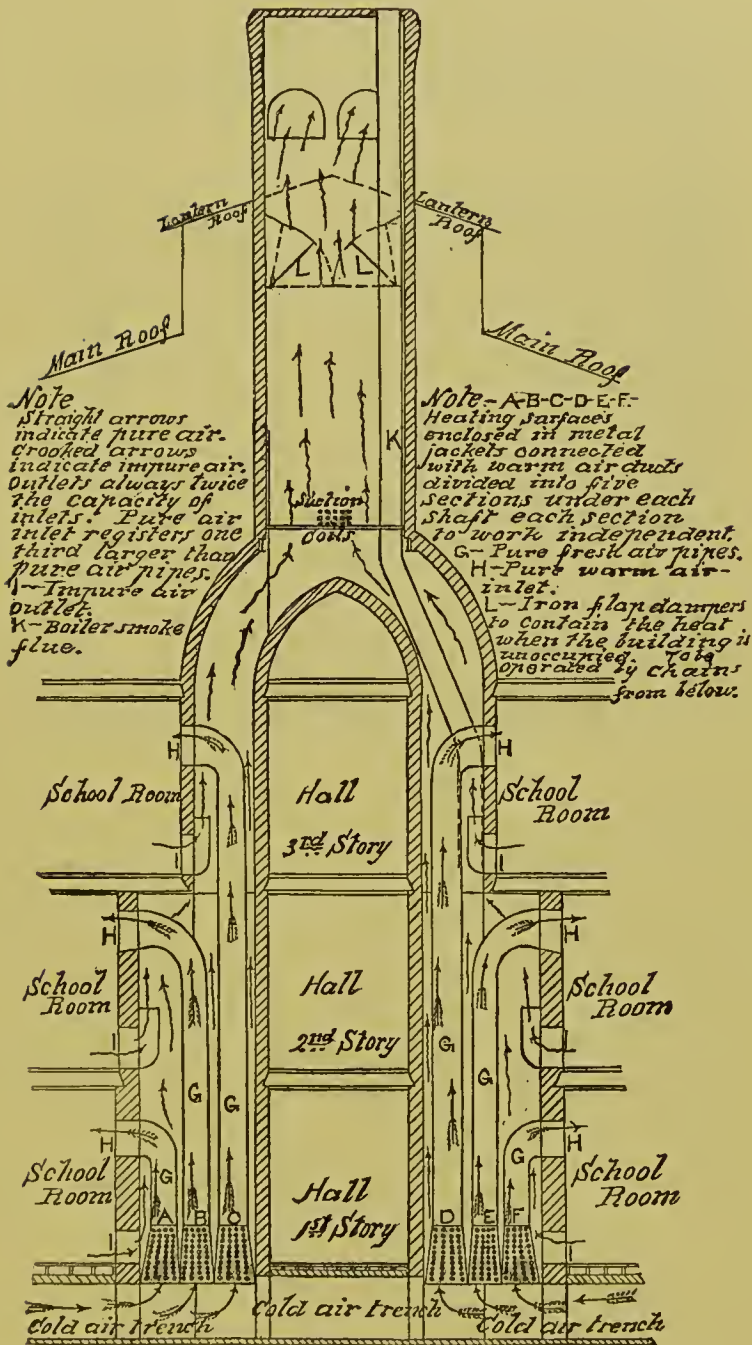 Lantern
Roof
Lantern
Roof
Main Roof
Main Roof
Note
Straight arrows
indicate pure air.
Crooked arrows
indicate impure air.
Outlets always twice
the capacity of
inlets. Pure air
inlet registers one
third larger than
pure air pipes.
I-Impure air
outlet.
K-Boiler smoke
flue.
Note.-A-B-C-D-E-F.-
Heating surfaces
enclosed in metal
jackets connected
with warm air ducts
divided into five
sections under each
shaft each section
to work independent.
G-Pure fresh air pipes.
H-Pure warm air-
inlet.
L-Iron flap dampers
to contain the heat
when the building is
unoccupied. To be
operated by chains
from below.
L L
K
Suction
Coils
H
H
School Room
Hall
3rd Story
School
Room
I
I
H
H
School
Room
Hall
2nd Story
School
Room
I
I
G G
G G
H
H
School
Room
Hall
1st Story
School
Room
G
G
I
I
A B C
D E F
Cold air trench
Cold air trench
Cold air trench